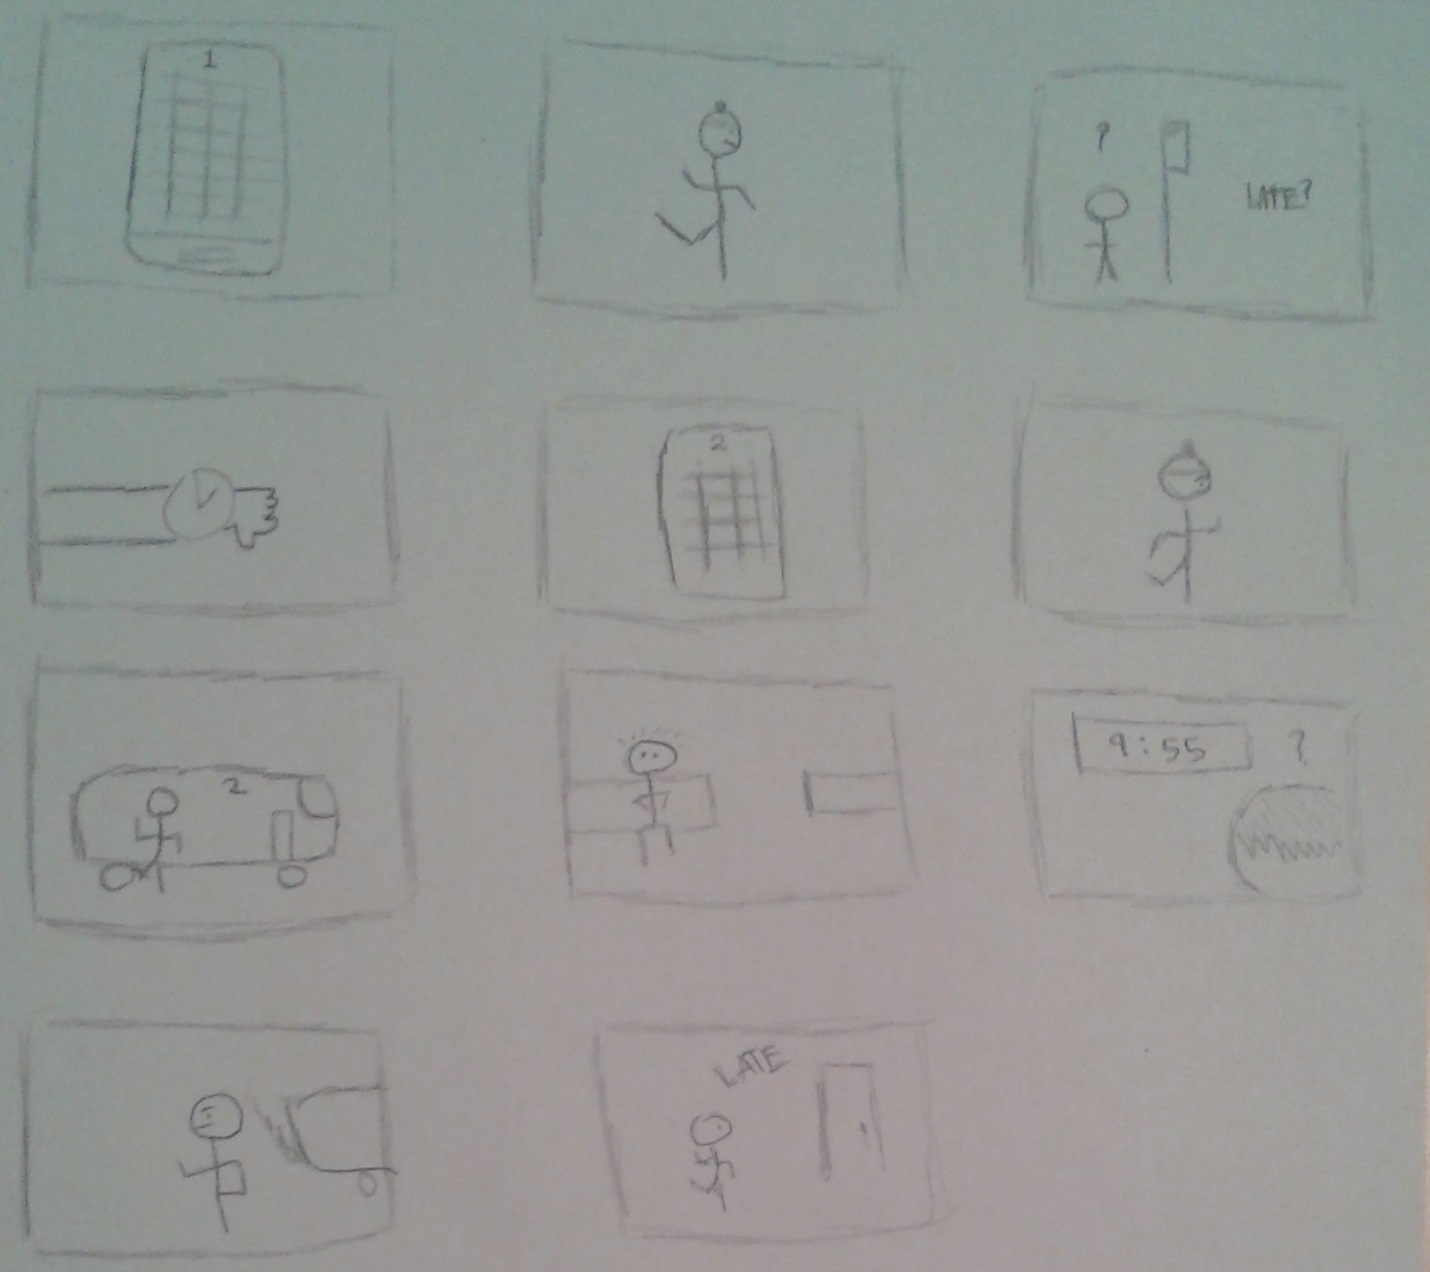 1
?
LATE?
2
2
9:55 ?
LATE